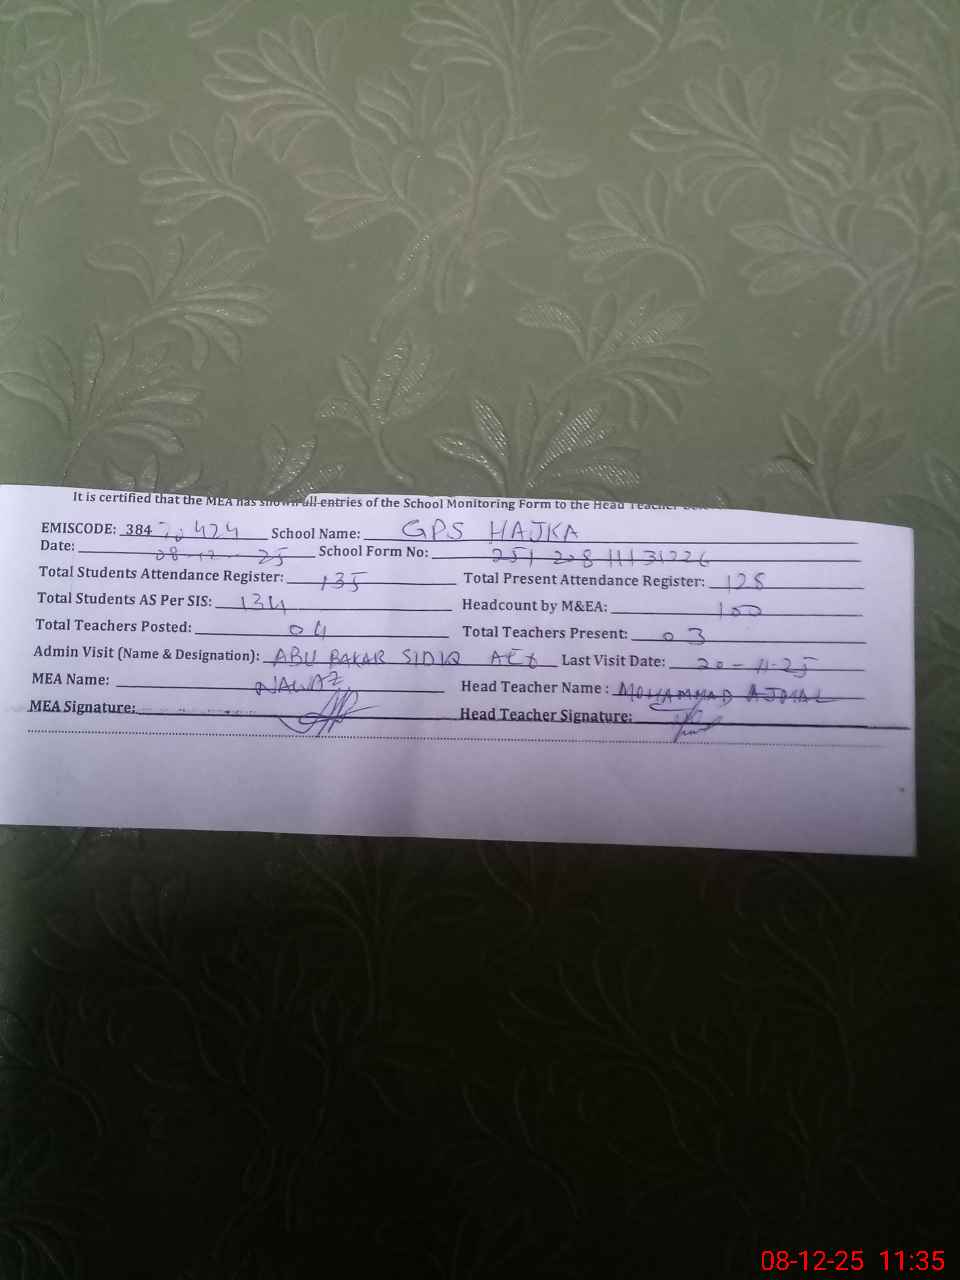 It is certified that the MEA has shown all entries of the School Monitoring Form to the Head Teacher
EMISCODE: 384 20424 School Name: GPS HAJKA
Date: 08-12-25 School Form No: 25120811131226
Total Students Attendance Register: 135 Total Present Attendance Register: 128
Total Students AS Per SIS: 134 Headcount by M&EA: 100
Total Teachers Posted: 04 Total Teachers Present: 03
Admin Visit (Name & Designation): ABU BAKAR SIDIQ Last Visit Date: 20-11-25
MEA Name: NAWAZ Head Teacher Name : MOHAMMAD AJMAL
MEA Signature: Head Teacher Signature:
08-12-25 11:35